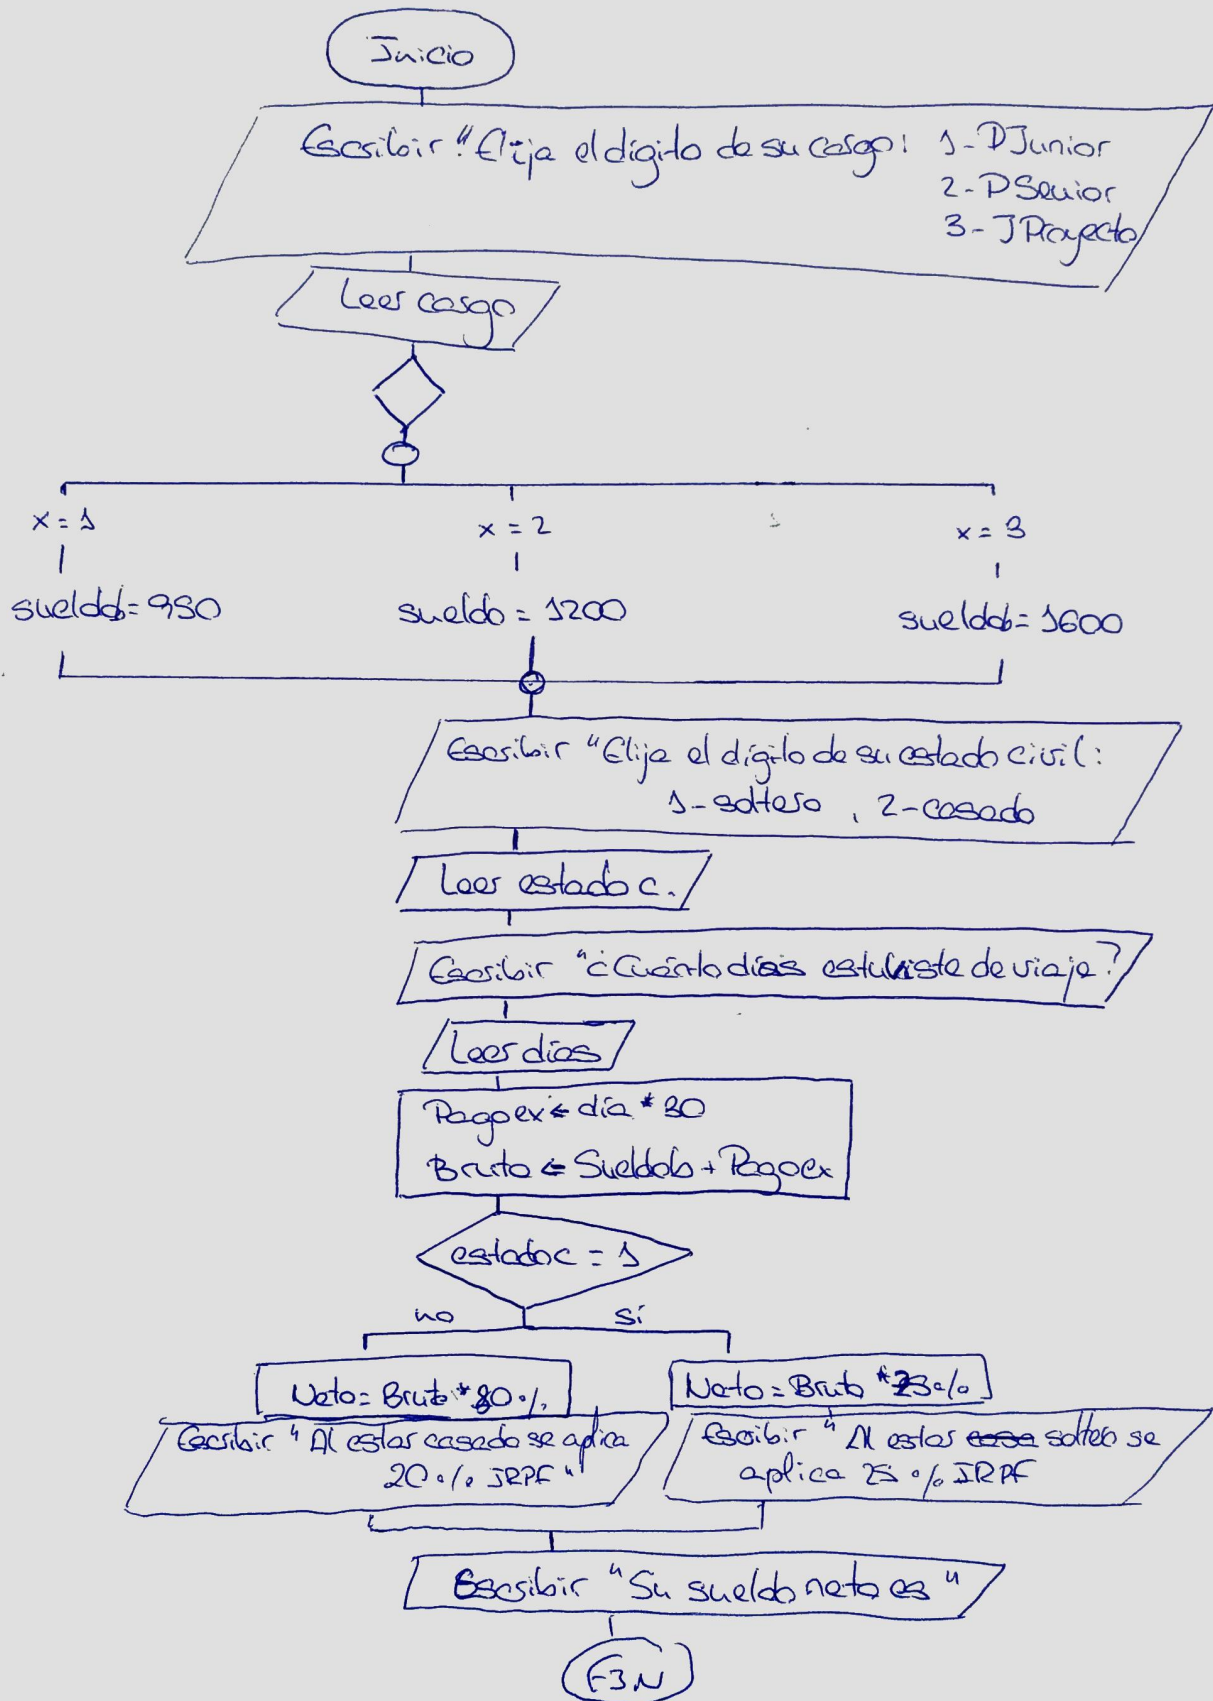 Inicio
Escribir "Elija el dígito de su cargo: 1- DJunior
2- DSenior
3- JProyecto
Leer cargo
x = 1
x = 2
x = 3
sueldob = 950
sueldo = 1200
sueldob = 1600
Escribir "Elija el dígito de su estado civil:
1- soltero , 2- casado
Leer estado c.
Escribir "¿Cuánto días estubiste de viaje?
Leer días
Pagoex ← día * 30
Bruto ← Sueldob + Pagoex
estadoc = 1
no
sí
Neto = Bruto * 80 %
Neto = Bruto * 75 %
Escribir "Al estar casado se aplica
20 % IRPF "
Escribir " Al estar casa soltero se
aplica 25 % IRPF
Escribir "Su sueldo neto es "
FIN